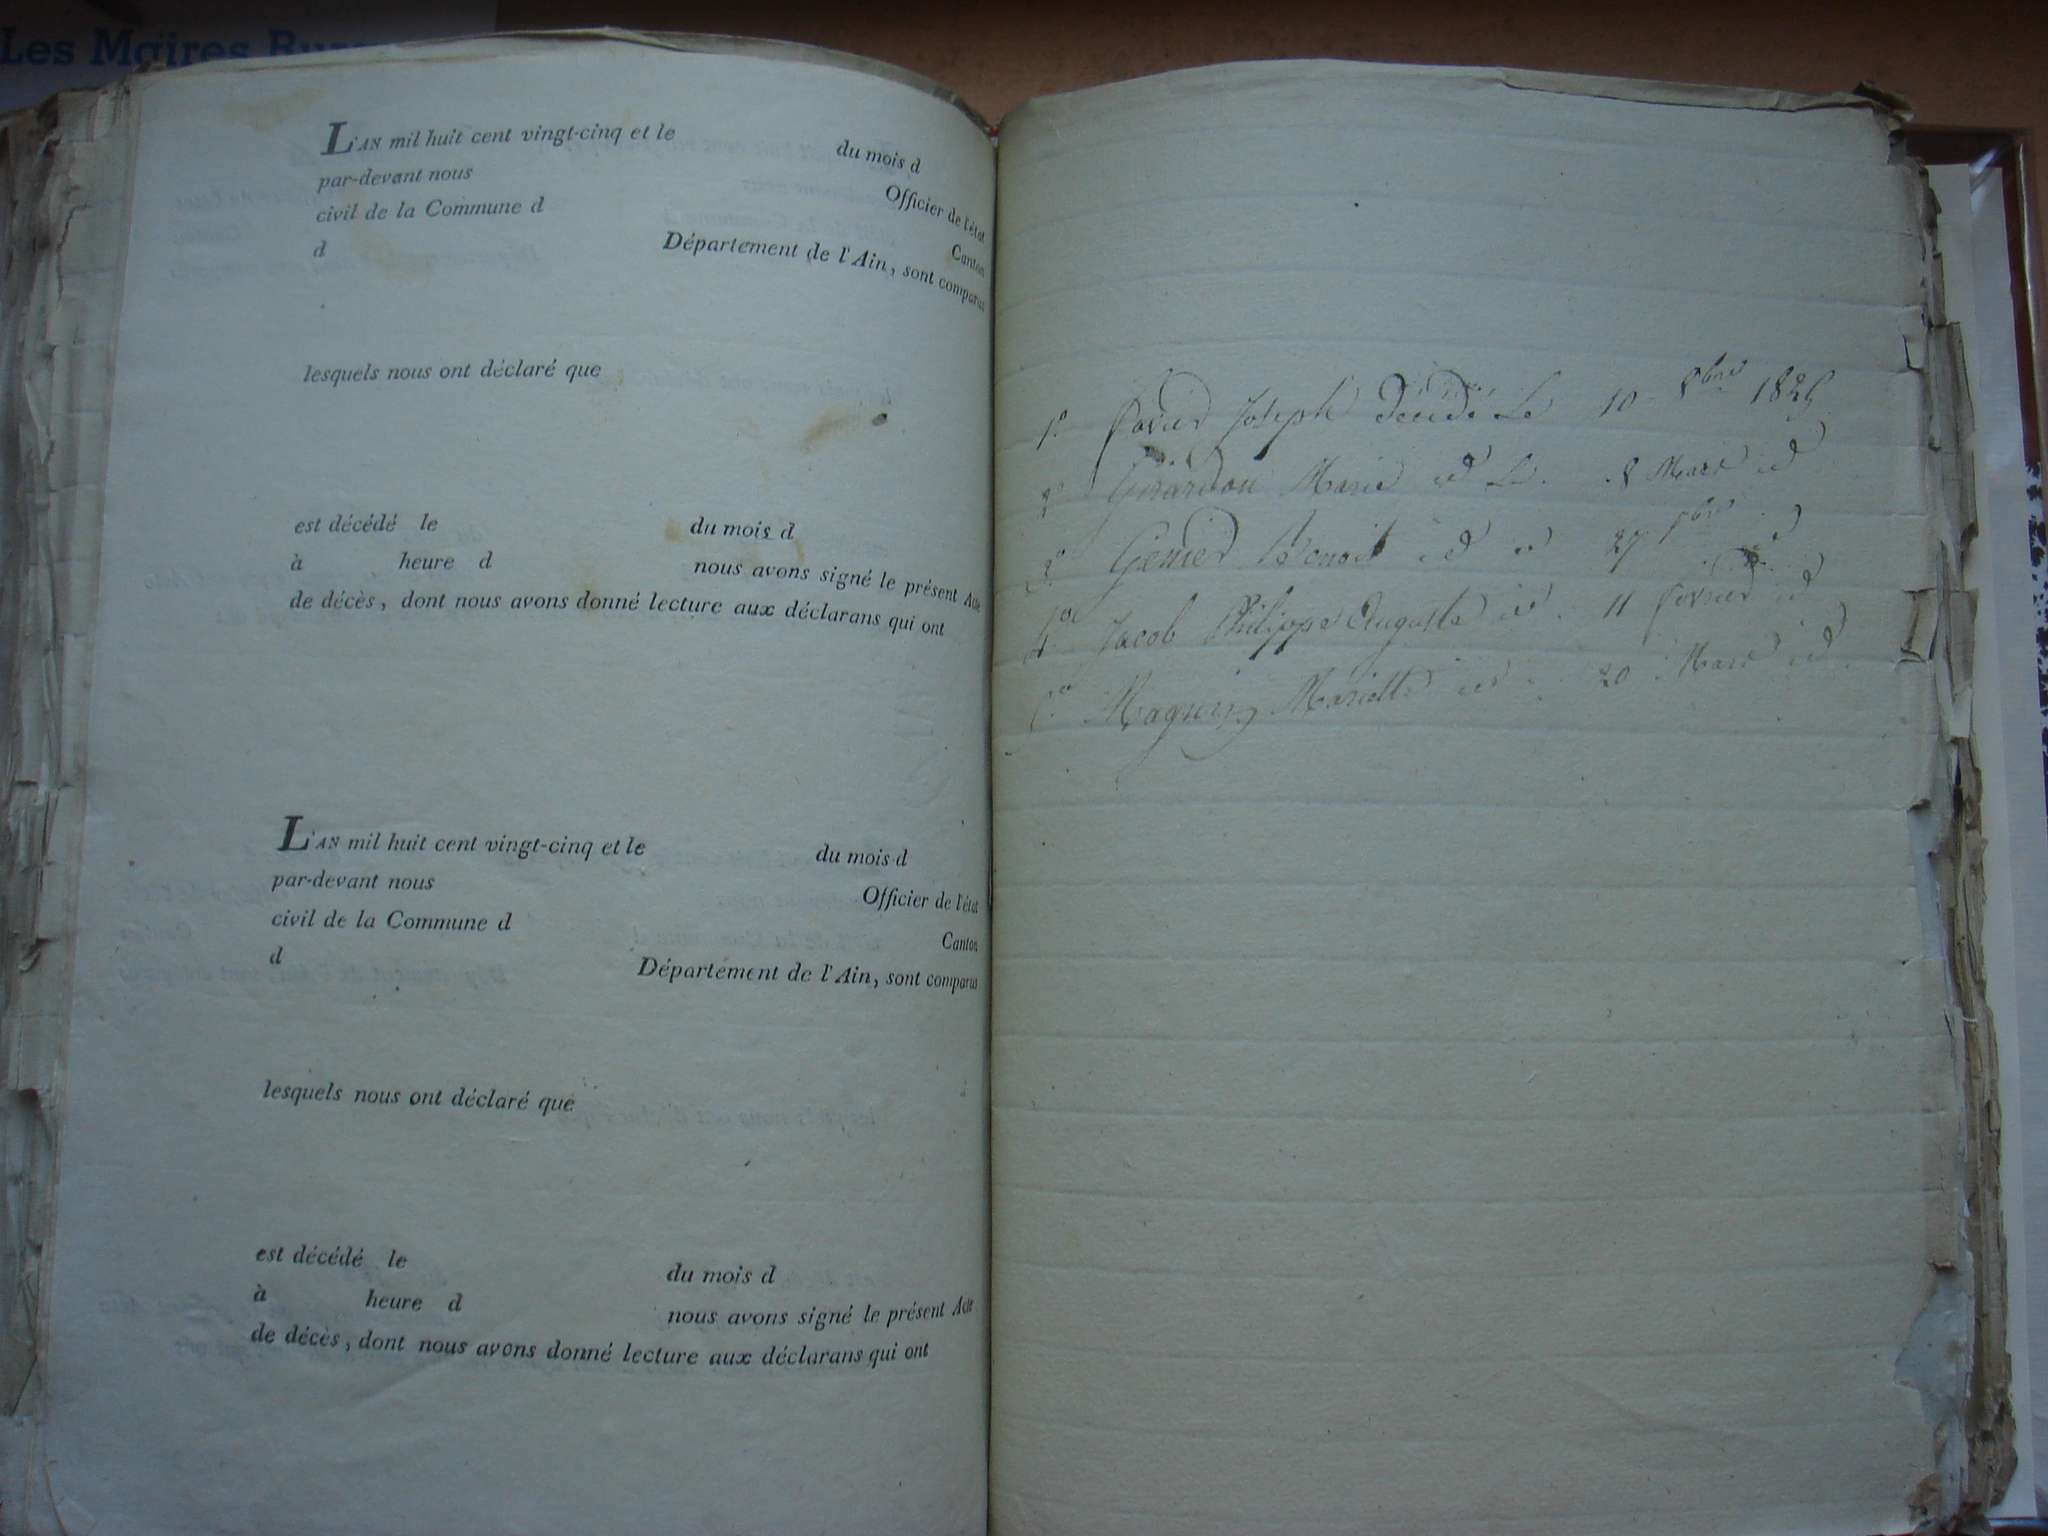 Les Maires
L'AN mil huit cent vingt-cinq et le du mois d
par-devant nous Officier de l'état
civil de la Commune d Canton
d Département de l'Ain, sont comparus
lesquels nous ont déclaré que
est décédé le du mois d
à heure d nous avons signé le présent Acte
de décès, dont nous avons donné lecture aux déclarans qui ont
L'AN mil huit cent vingt-cinq et le du mois d
par-devant nous Officier de l'état
civil de la Commune d Canton
d Département de l'Ain, sont comparus
lesquels nous ont déclaré que
est décédé le du mois d
à heure d nous avons signé le présent Acte
de décès, dont nous avons donné lecture aux déclarans qui ont
1° Joseph décédé Le 10 8bre 1825
2° Marie id Le 8 Mars id
3° Benoit id 27
4° Jacob Philippe Auguste id 11 février id
5° Mariette id 20 Mars id